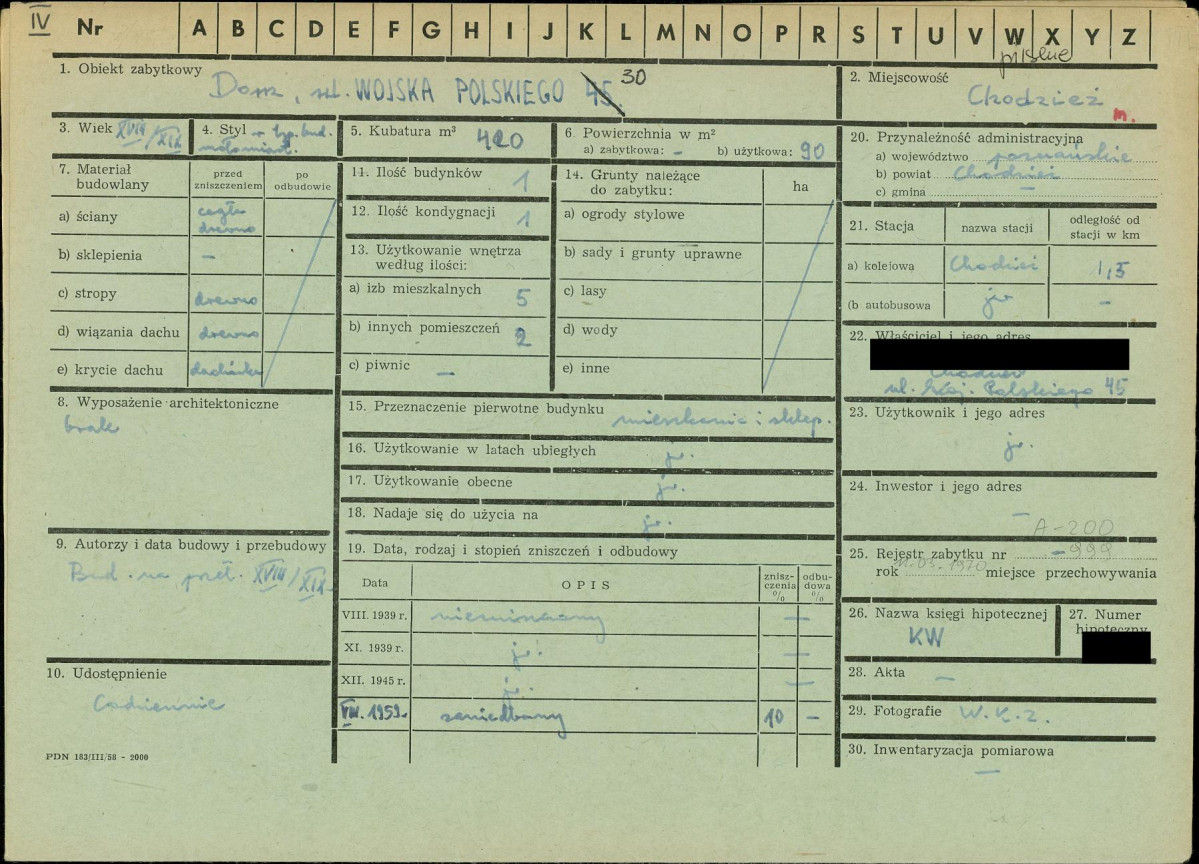 IV Nr A B C D E F G H I J K L M N O P R S T U V W X Y Z
pilskie
1. Obiekt zabytkowy
Dom, ul. WOJSKA POLSKIEGO 45 30
2. Miejscowość
Chodzież
m.
3. Wiek XVIII/XIX
4. Styl typ. bud. małomiast.
5. Kubatura m³ 420
6. Powierzchnia w m²
a) zabytkowa: - b) użytkowa: 90
7. Materiał budowlany
przed zniszczeniem
po odbudowie
a) ściany cegła drewno
b) sklepienia -
c) stropy drewno
d) wiązania dachu drewno
e) krycie dachu dachówka
8. Wyposażenie architektoniczne
brak
9. Autorzy i data budowy i przebudowy
Bud. na przeł. XVIII/XIX
10. Udostępnienie
Codziennie
PDN 183/III/58 - 2000
11. Ilość budynków 1
12. Ilość kondygnacji 1
13. Użytkowanie wnętrza według ilości:
a) izb mieszkalnych 5
b) innych pomieszczeń 2
c) piwnic -
14. Grunty należące do zabytku:
ha
a) ogrody stylowe
b) sady i grunty uprawne
c) lasy
d) wody
e) inne
15. Przeznaczenie pierwotne budynku mieszkanie i sklep.
16. Użytkowanie w latach ubiegłych jw.
17. Użytkowanie obecne jw.
18. Nadaje się do użycia na jw.
19. Data, rodzaj i stopień zniszczeń i odbudowy
Data OPIS zniszczenia % odbudowa %
VIII. 1939 r. nieruszony -
XI. 1939 r. jw. -
XII. 1945 r. jw. -
VIII. 1959r. zaniedbany 10 -
20. Przynależność administracyjna
a) województwo poznańskie
b) powiat Chodzież
c) gmina -
21. Stacja nazwa stacji odległość od stacji w km
a) kolejowa Chodzież 1,5
(b autobusowa jw -
22. Właściciel i jego adres
Chodzież
ul. Woj. Polskiego 45
23. Użytkownik i jego adres
jw.
24. Inwestor i jego adres
-
A-200
25. Rejestr zabytku nr - 999
rok 11.03.1970 miejsce przechowywania
26. Nazwa księgi hipotecznej
KW
27. Numer hipoteczny
28. Akta -
29. Fotografie W.K.Z.
30. Inwentaryzacja pomiarowa
-